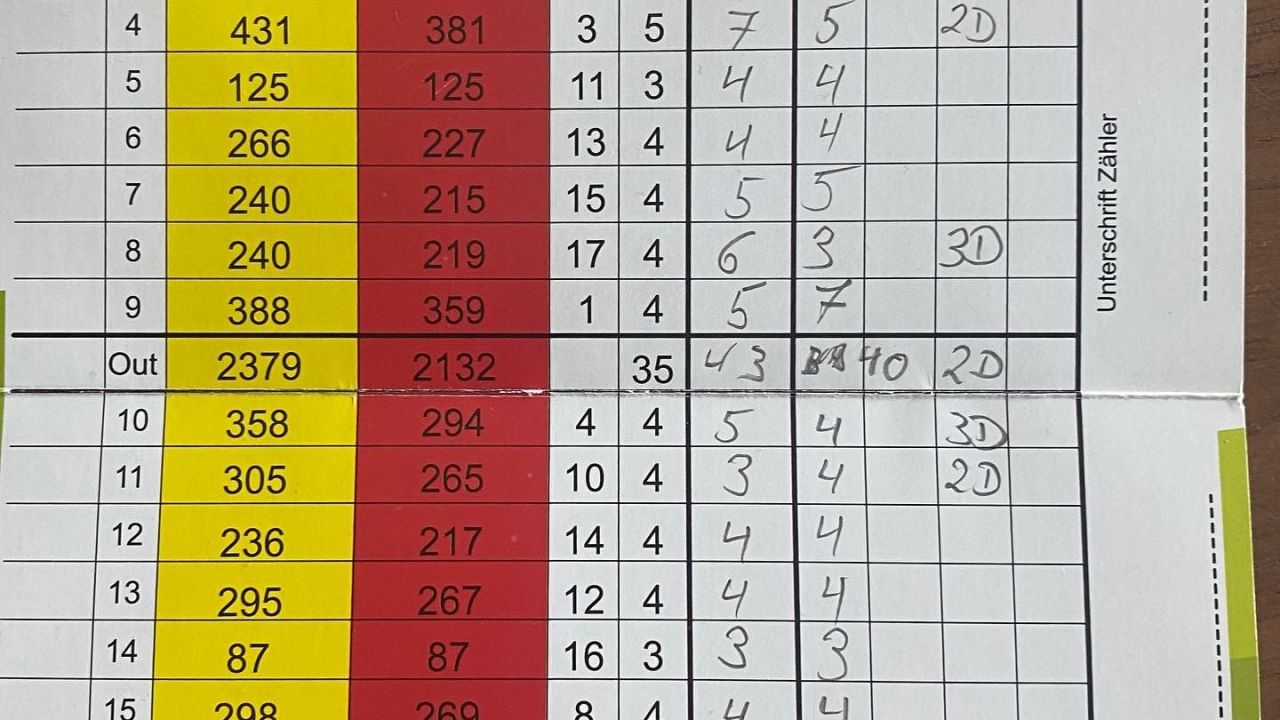 4 431 381 3 5 7 5 2D
5 125 125 11 3 4 4
6 266 227 13 4 4 4
7 240 215 15 4 5 5
8 240 219 17 4 6 3 3D
9 388 359 1 4 5 7
Out 2379 2132 35 43 40 2D
10 358 294 4 4 5 4 3D
11 305 265 10 4 3 4 2D
12 236 217 14 4 4 4
13 295 267 12 4 4 4
14 87 87 16 3 3 3
15 298 269 8 4 4 4
Unterschrift Zähler